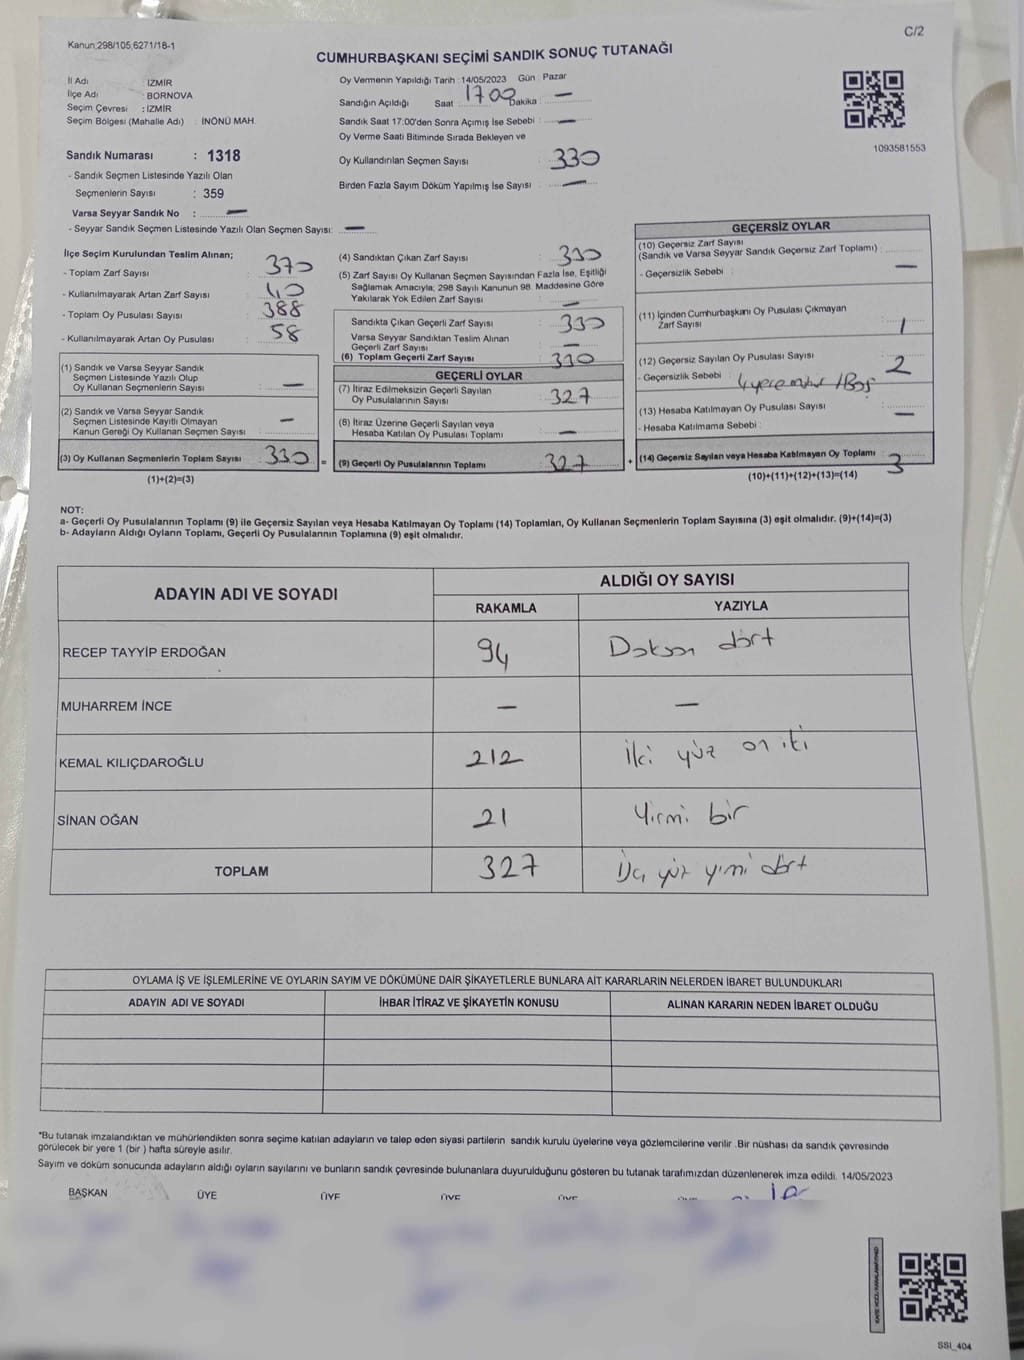 Kanun:298/105,6271/18-1
C/2
CUMHURBAŞKANI SEÇİMİ SANDIK SONUÇ TUTANAĞI
İl Adı : İZMİR
İlçe Adı : BORNOVA
Seçim Çevresi : İZMİR
Seçim Bölgesi (Mahalle Adı) : İNÖNÜ MAH.
Sandık Numarası : 1318
- Sandık Seçmen Listesinde Yazılı Olan
Seçmenlerin Sayısı : 359
Varsa Seyyar Sandık No : —
- Seyyar Sandık Seçmen Listesinde Yazılı Olan Seçmen Sayısı: —
Oy Vermenin Yapıldığı Tarih :14/05/2023 Gün : Pazar
Sandığın Açıldığı Saat 1700 Dakika : —
Sandık Saat 17:00'den Sonra Açımış İse Sebebi : —
Oy Verme Saati Bitiminde Sırada Bekleyen ve
Oy Kullandırılan Seçmen Sayısı : 330
Birden Fazla Sayım Döküm Yapılmış İse Sayısı : —
1093581553
İlçe Seçim Kurulundan Teslim Alınan;
- Toplam Zarf Sayısı : 370
- Kullanılmayarak Artan Zarf Sayısı : 40
- Toplam Oy Pusulası Sayısı : 388
- Kullanılmayarak Artan Oy Pusulası : 58
(1) Sandık ve Varsa Seyyar Sandık
Seçmen Listesinde Yazılı Olup
Oy Kullanan Seçmenlerin Sayısı : —
(2) Sandık ve Varsa Seyyar Sandık
Seçmen Listesinde Kayıtlı Olmayan
Kanun Gereği Oy Kullanan Seçmen Sayısı : —
(3) Oy Kullanan Seçmenlerin Toplam Sayısı : 330 =
(1)+(2)=(3)
(4) Sandıktan Çıkan Zarf Sayısı : 330
(5) Zarf Sayısı Oy Kullanan Seçmen Sayısından Fazla İse, Eşitliği
Sağlamak Amacıyla; 298 Sayılı Kanunun 98. Maddesine Göre
Yakılarak Yok Edilen Zarf Sayısı : —
Sandıkta Çıkan Geçerli Zarf Sayısı : 330
Varsa Seyyar Sandıktan Teslim Alınan
Geçerli Zarf Sayısı : —
(6) Toplam Geçerli Zarf Sayısı : 330
GEÇERLİ OYLAR
(7) İtiraz Edilmeksizin Geçerli Sayılan
Oy Pusulalarının Sayısı : 327
(8) İtiraz Üzerine Geçerli Sayılan veya
Hesaba Katılan Oy Pusulası Toplamı : —
(9) Geçerli Oy Pusulalarının Toplamı : 327 +
GEÇERSİZ OYLAR
(10) Geçersiz Zarf Sayısı
(Sandık ve Varsa Seyyar Sandık Geçersiz Zarf Toplamı) : —
- Geçersizlik Sebebi :
(11) İçinden Cumhurbaşkanı Oy Pusulası Çıkmayan
Zarf Sayısı : 1
(12) Geçersiz Sayılan Oy Pusulası Sayısı : 2
- Geçersizlik Sebebi :
(13) Hesaba Katılmayan Oy Pusulası Sayısı : —
- Hesaba Katılmama Sebebi :
(14) Geçersiz Sayılan veya Hesaba Katılmayan Oy Toplamı : 3
(10)+(11)+(12)+(13)=(14)
NOT:
a- Geçerli Oy Pusulalarının Toplamı (9) ile Geçersiz Sayılan veya Hesaba Katılmayan Oy Toplamı (14) Toplamları, Oy Kullanan Seçmenlerin Toplam Sayısına (3) eşit olmalıdır. (9)+(14)=(3)
b- Adayların Aldığı Oyların Toplamı, Geçerli Oy Pusulalarının Toplamına (9) eşit olmalıdır.
ADAYIN ADI VE SOYADI
ALDIĞI OY SAYISI
RAKAMLA YAZIYLA
RECEP TAYYİP ERDOĞAN 94 Doksan dört
MUHARREM İNCE — —
KEMAL KILIÇDAROĞLU 212 İki yüz on iki
SİNAN OĞAN 21 Yirmi bir
TOPLAM 327 Üç yüz yirmi dört
OYLAMA İŞ VE İŞLEMLERİNE VE OYLARIN SAYIM VE DÖKÜMÜNE DAİR ŞİKAYETLERLE BUNLARA AİT KARARLARIN NELERDEN İBARET BULUNDUKLARI
ADAYIN ADI VE SOYADI İHBAR İTİRAZ VE ŞİKAYETİN KONUSU ALINAN KARARIN NEDEN İBARET OLDUĞU
*Bu tutanak imzalandıktan ve mühürlendikten sonra seçime katılan adayların ve talep eden siyasi partilerin sandık kurulu üyelerine veya gözlemcilerine verilir .Bir nüshası da sandık çevresinde
görülecek bir yere 1 (bir ) hafta süreyle asılır.
Sayım ve döküm sonucunda adayların aldığı oyların sayılarını ve bunların sandık çevresinde bulunanlara duyurulduğunu gösteren bu tutanak tarafımızdan düzenlenerek imza edildi. 14/05/2023
BAŞKAN ÜYE ÜYE ÜYE ÜYE
SSI_404